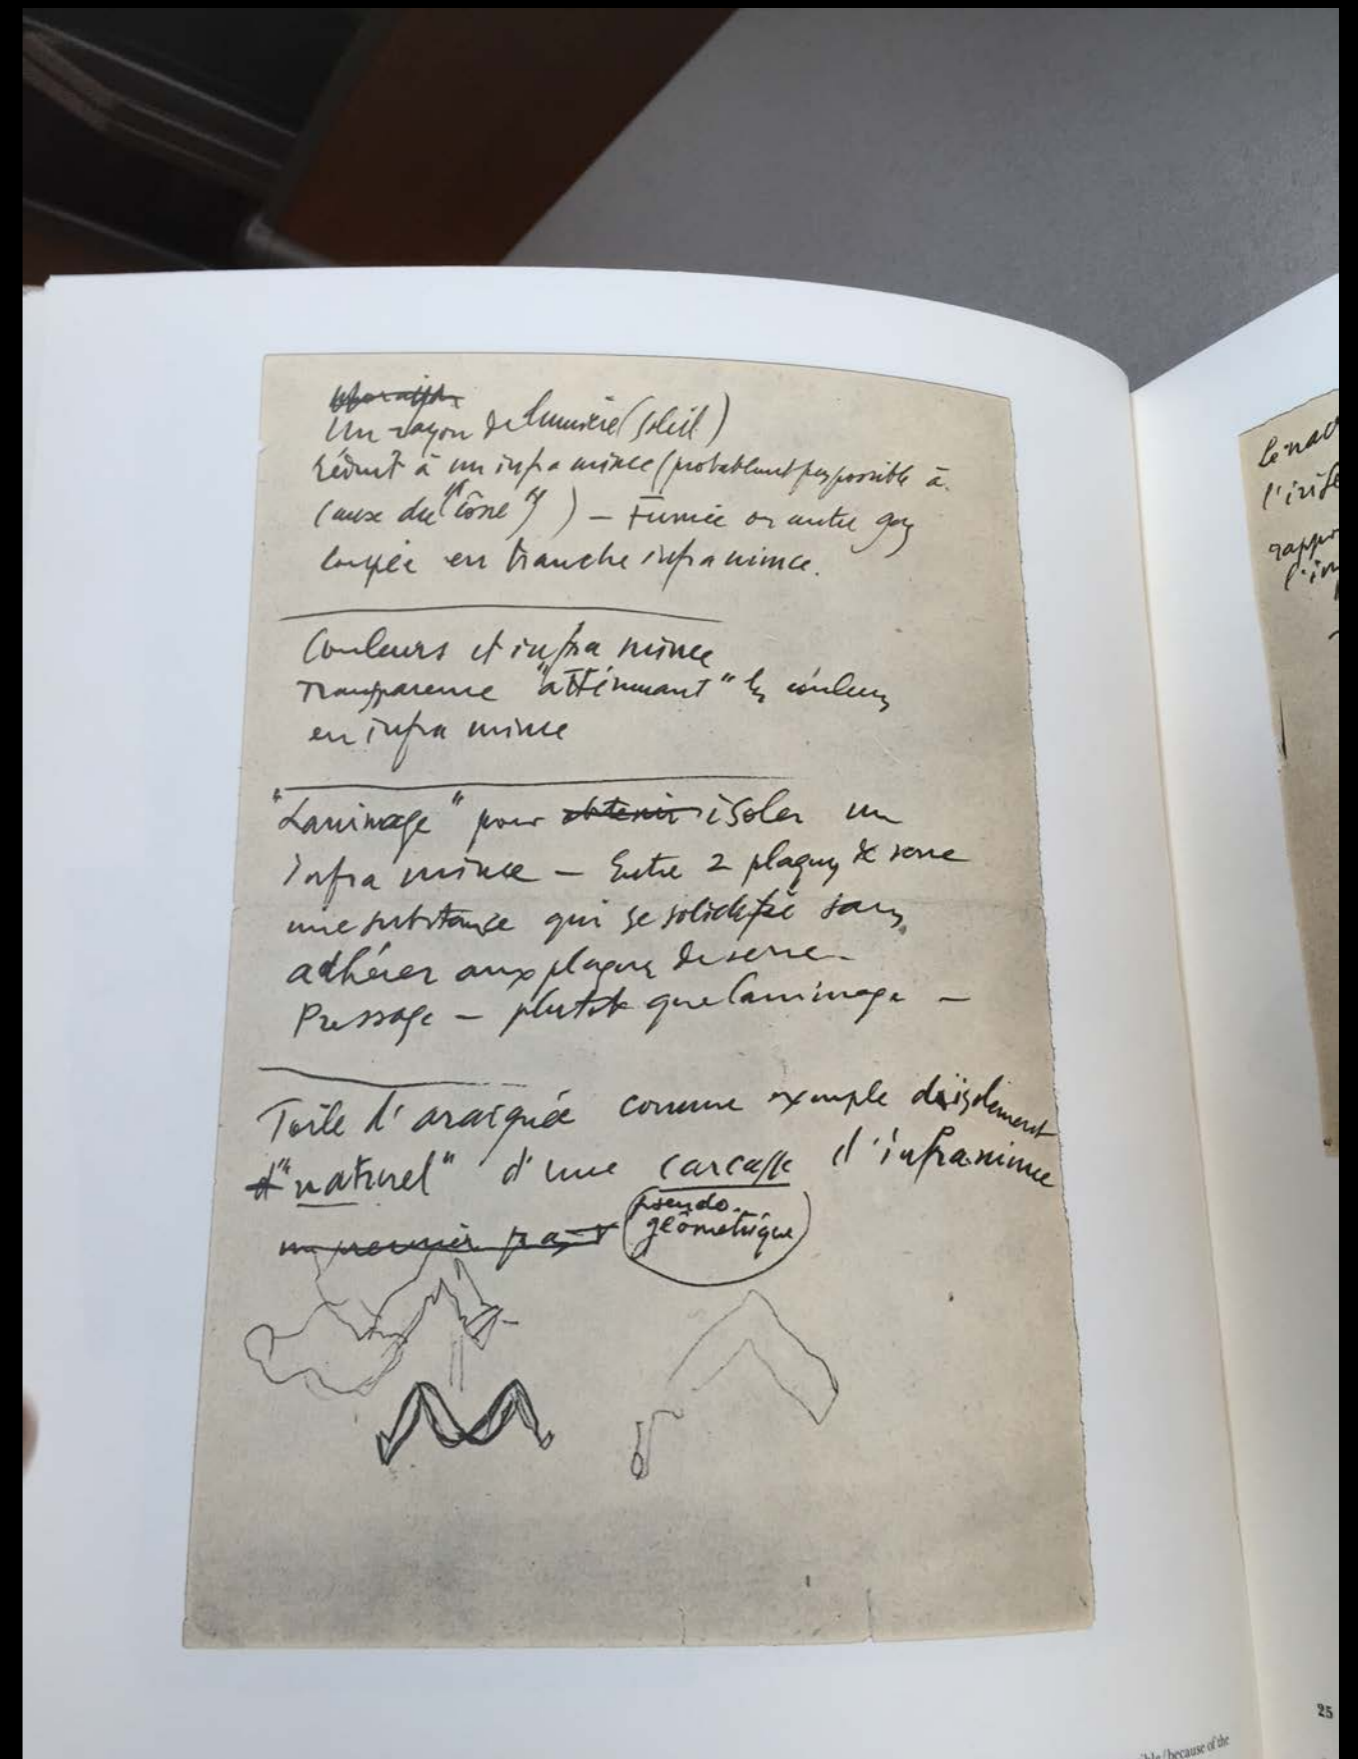 Un rayon de lumière (soleil)
réduit à un infra mince (probablement pas possible à
cause du "cône") – Fumée ou autre gaz
coupée en tranche infra mince.
Couleurs et infra mince
Transparence "atténuant" les couleurs
en infra mince
"Laminage" pour obtenir isoler un
infra mince – Entre 2 plaques de verre
une substance qui se solidifie sans
adhérer aux plaques de verre –
Pressage – plutot que laminage –
Toile d'araignée comme exemple d'isolement
d' "naturel" d'une carcasse d'infra mince
pseudo.
géométrique
Le nac
l'irise
rappo
l'im
25
ble / because of the